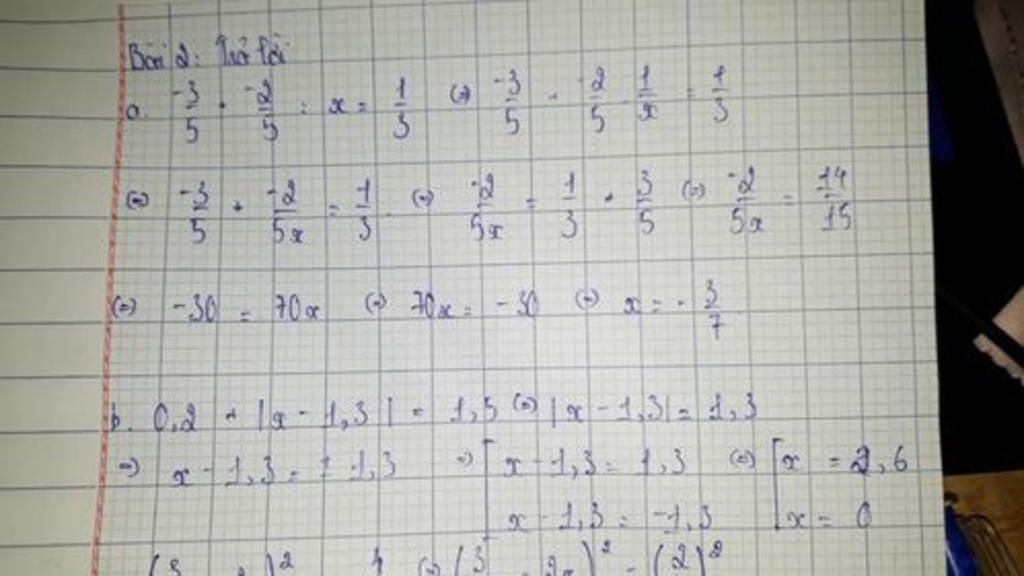 Bài 2: Trả lời
a. -3/5 + -2/5 : x = 1/3 (=) -3/5 + -2/5 . 1/x = 1/3
(=) -3/5 + -2/5x = 1/3 (=) -2/5x = 1/3 + 3/5 (=) -2/5x = 14/15
(=) -30 = 70x (=) 70x = -30 (=) x = -3/7
b. 0,2 + |x - 1,3| = 1,5 (=) |x - 1,3| = 1,3
=) x - 1,3 = ± 1,3 =) [ x - 1,3 = 1,3 (=) [ x = 2,6
x - 1,3 = -1,3 x = 0